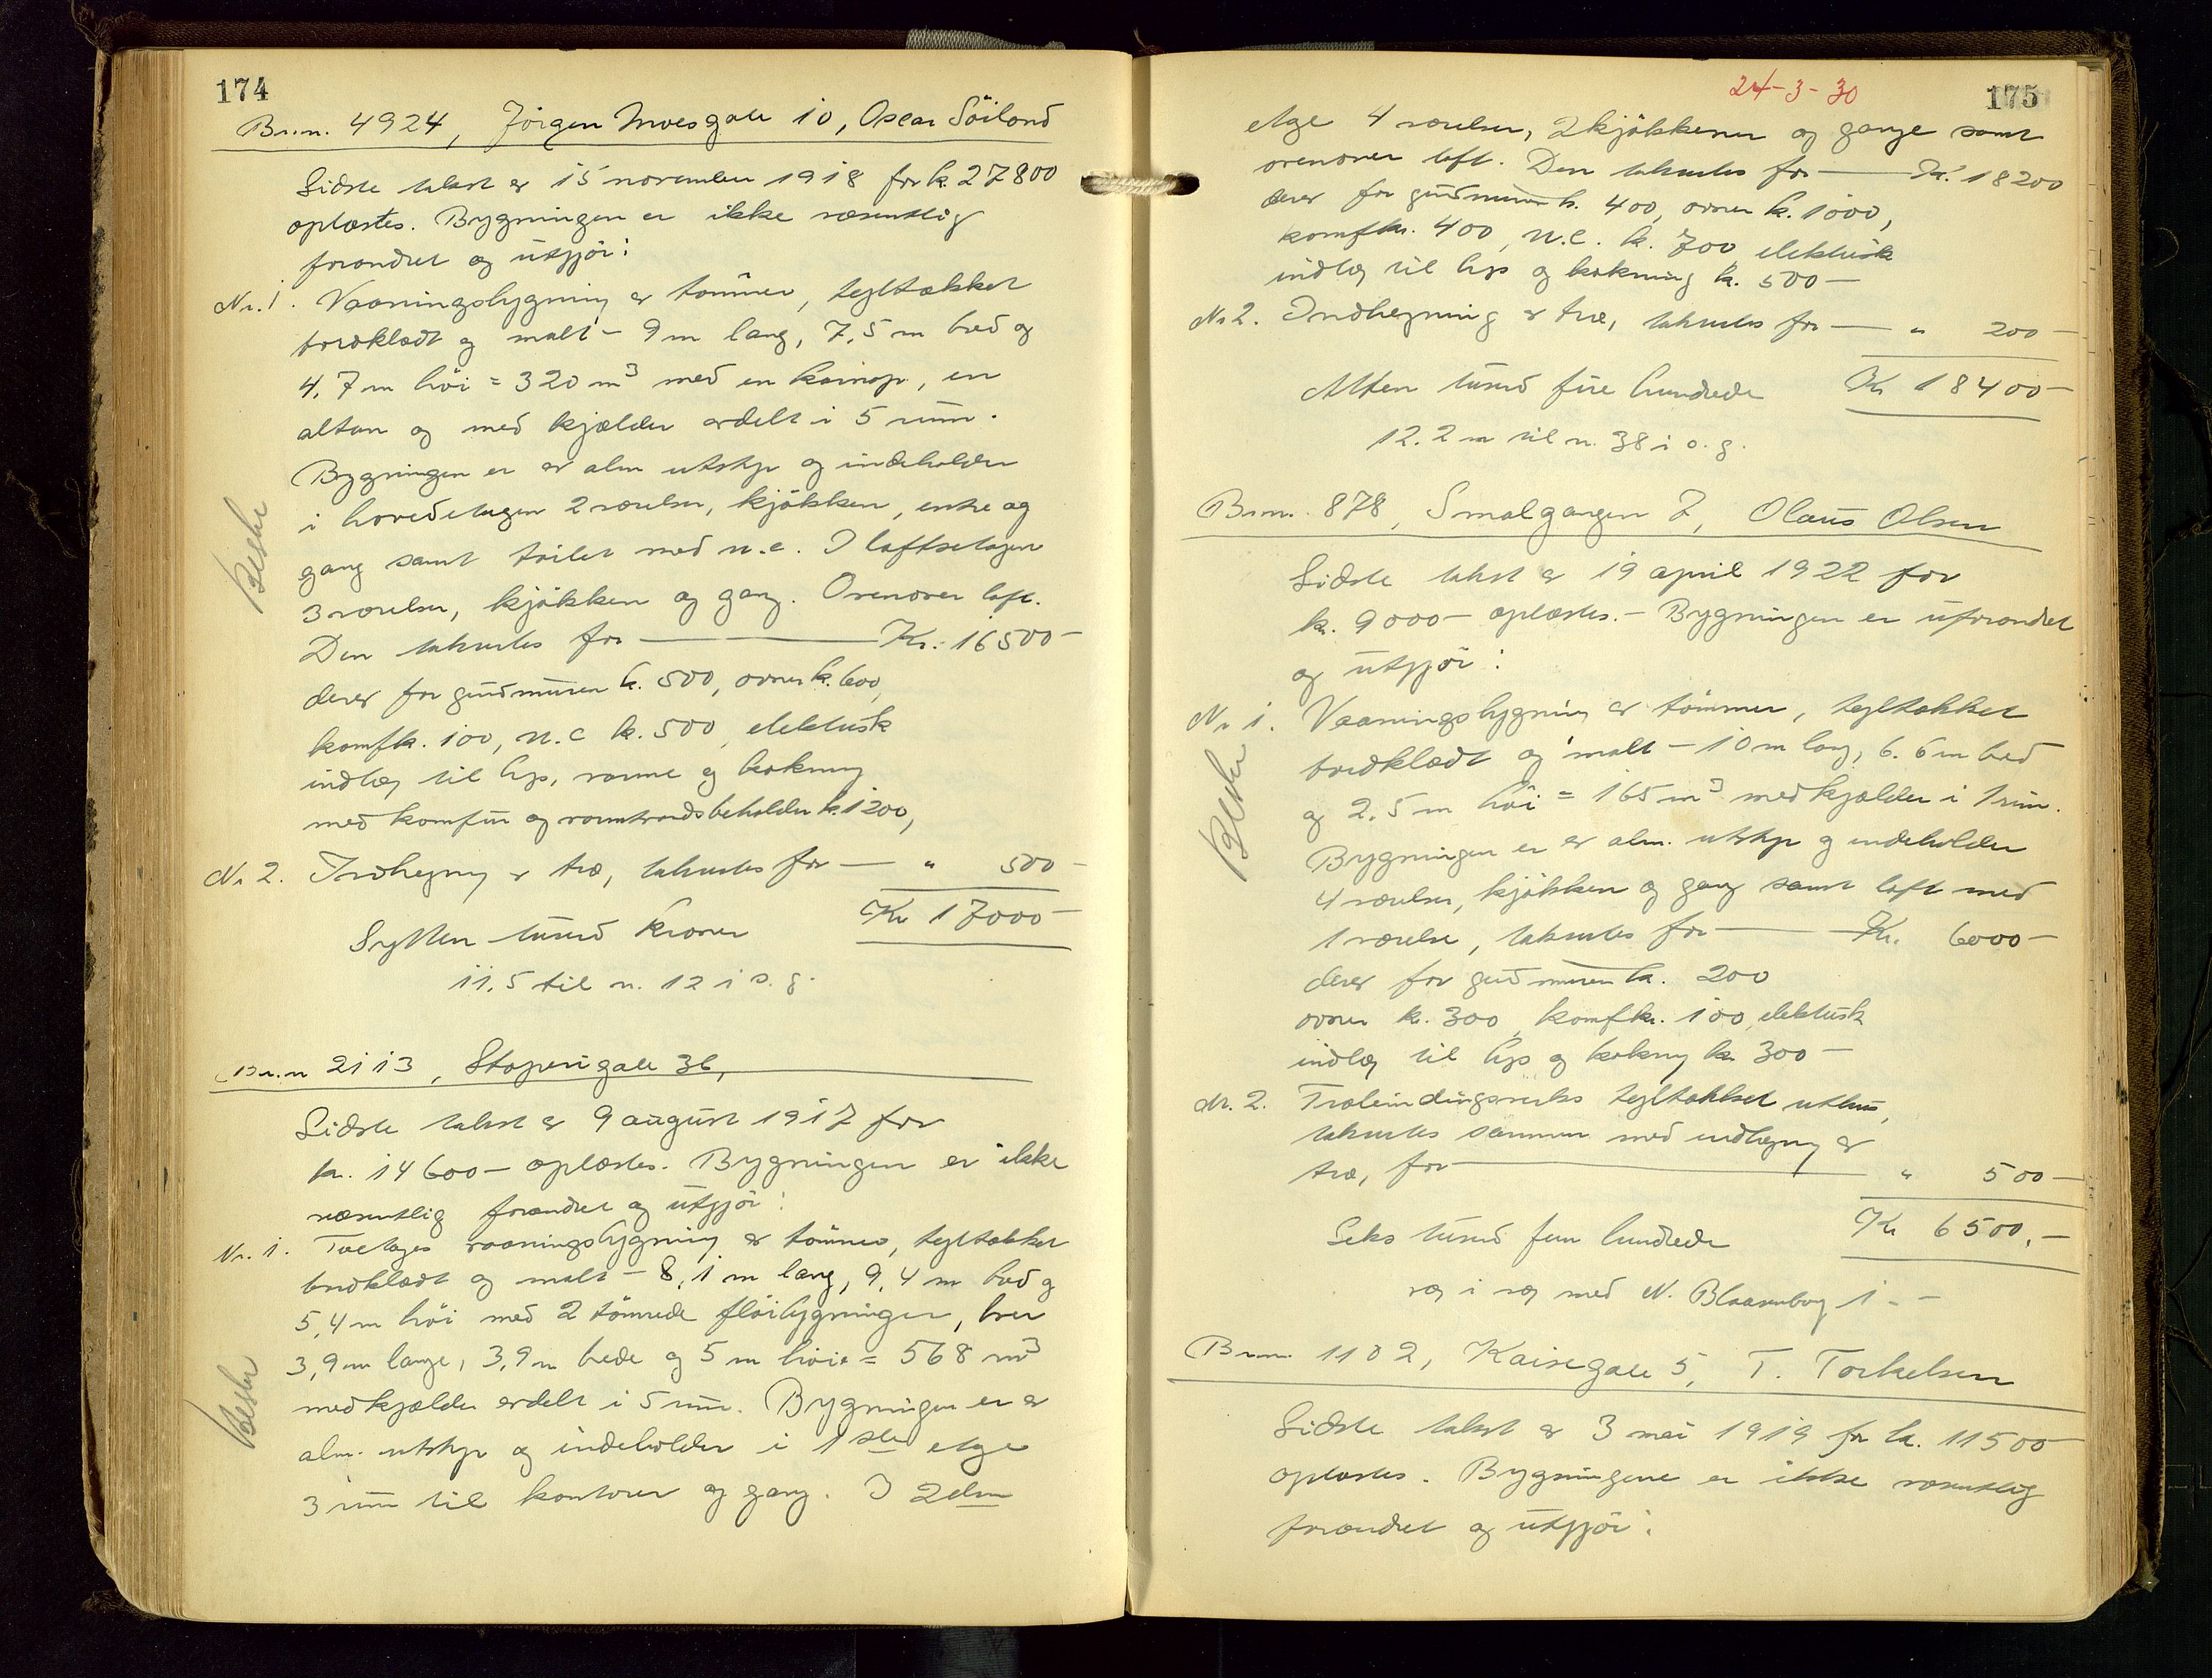 174
Br.n. 4924, Jörgen Moesgate 10, Oscar Söiland
Sidste takst er 15 november 1918 for kr. 27800
oplæstes. Bygningen er ikke væsentlig
forandret og utgjör:
Nr. 1. Vaaningsbygning av tömmer, tegltækket
bordklædt og malt – 9 m lang, 7,5 m bred og
4,7 m höi = 320 m³ med en karnap, en
altan og med kjælder avdelt i 5 rum.
Bygningen er av alm utstyr og indeholder
i hovedetagen 2 værelser, kjökken, entre og
gang samt toilet med w.c. I loftsetagen
3 værelser, kjökken og gang. Ovenover loft.
Den takseres for — Kr. 16500 –
derav for grundmuren kr. 500, ovner kr. 600,
komf kr. 100, w.c kr. 500, elektrisk
indlæg til lys, varme og kokning
med komfur og varmtvandsbeholder kr. 1200,
Nr 2. Indhegning av træ, takseres for — " 500 –
Kr 17000 –
Sytten tusend kroner
11,5 til n. 12 i s. g.
Br.n 2113, Stoperigate 36,
Sidste takst er 9 august 1917 for
kr. 14600 – oplæstes. Bygningen er ikke
væsentlig forandret og utgjör:
Nr. 1. Toetages vaaningsbygning av tömmer, tegltækket
bordklædt og malt – 8,1 m lang, 9,4 m bred og
5,4 m höi med 2 tömrede flöibygninger, hver
3,9 m lange, 3,9 m brede og 5 m höie = 568 m³
med kjælder avdelt i 5 rum. Bygningen er av
alm. utstyr og indeholder i 1ste etage
3 rum til kontorer og gang. I 2den
24-3-30
175
etage 4 værelser, 2 kjökkener og gange samt
ovenover loft. Den takseres for — Kr. 18200
derav for grundmuren kr. 400, ovner kr. 1000,
komf kr. 400, w.c. kr. 700, elektrisk
indlæg til lys og kokning kr. 500 –
Nr 2. Indhegning av træ, takseres for — " 200 –
Atten tusend fire hundrede Kr 18400 –
12.2 m til n. 38 i s. g.
Br.nr. 878, Smalgangen 7, Olaus Olsen
Sidste takst er 19 april 1922 for
kr. 9000 – oplæstes. – Bygningen er uforandret
og utgjör:
Nr 1. Vaaningsbygning av tömmer, tegltækket
bordklædt og malt – 10 m lang, 6.6 m bred
og 2.5 m höi = 165 m³ med kjælder i 1 rum.
Bygningen er av alm. utstyr og indeholder
4 værelser, kjökken og gang samt loft med
1 værelse, takseres for — Kr. 6000 –
derav for grundmuren kr. 200
ovner kr. 300, komf kr. 100, elektrisk
indlæg til lys og kokning kr 300 –
Nr. 2. Træbindingsverks tegltækket uthus,
takseres sammen med indhegning av
træ, for — " 500 –
Seks tusend fem hundrede Kr 6500, –
væg i væg med N. Blaasenborg 1 - –
Br.nr. 1102, Kaisegate 5, T. Torkelsen
Sidste takst er 3 mai 1919 for kr. 11500
oplæstes. Bygningene er ikke væsentlig
forandret og utgjör: